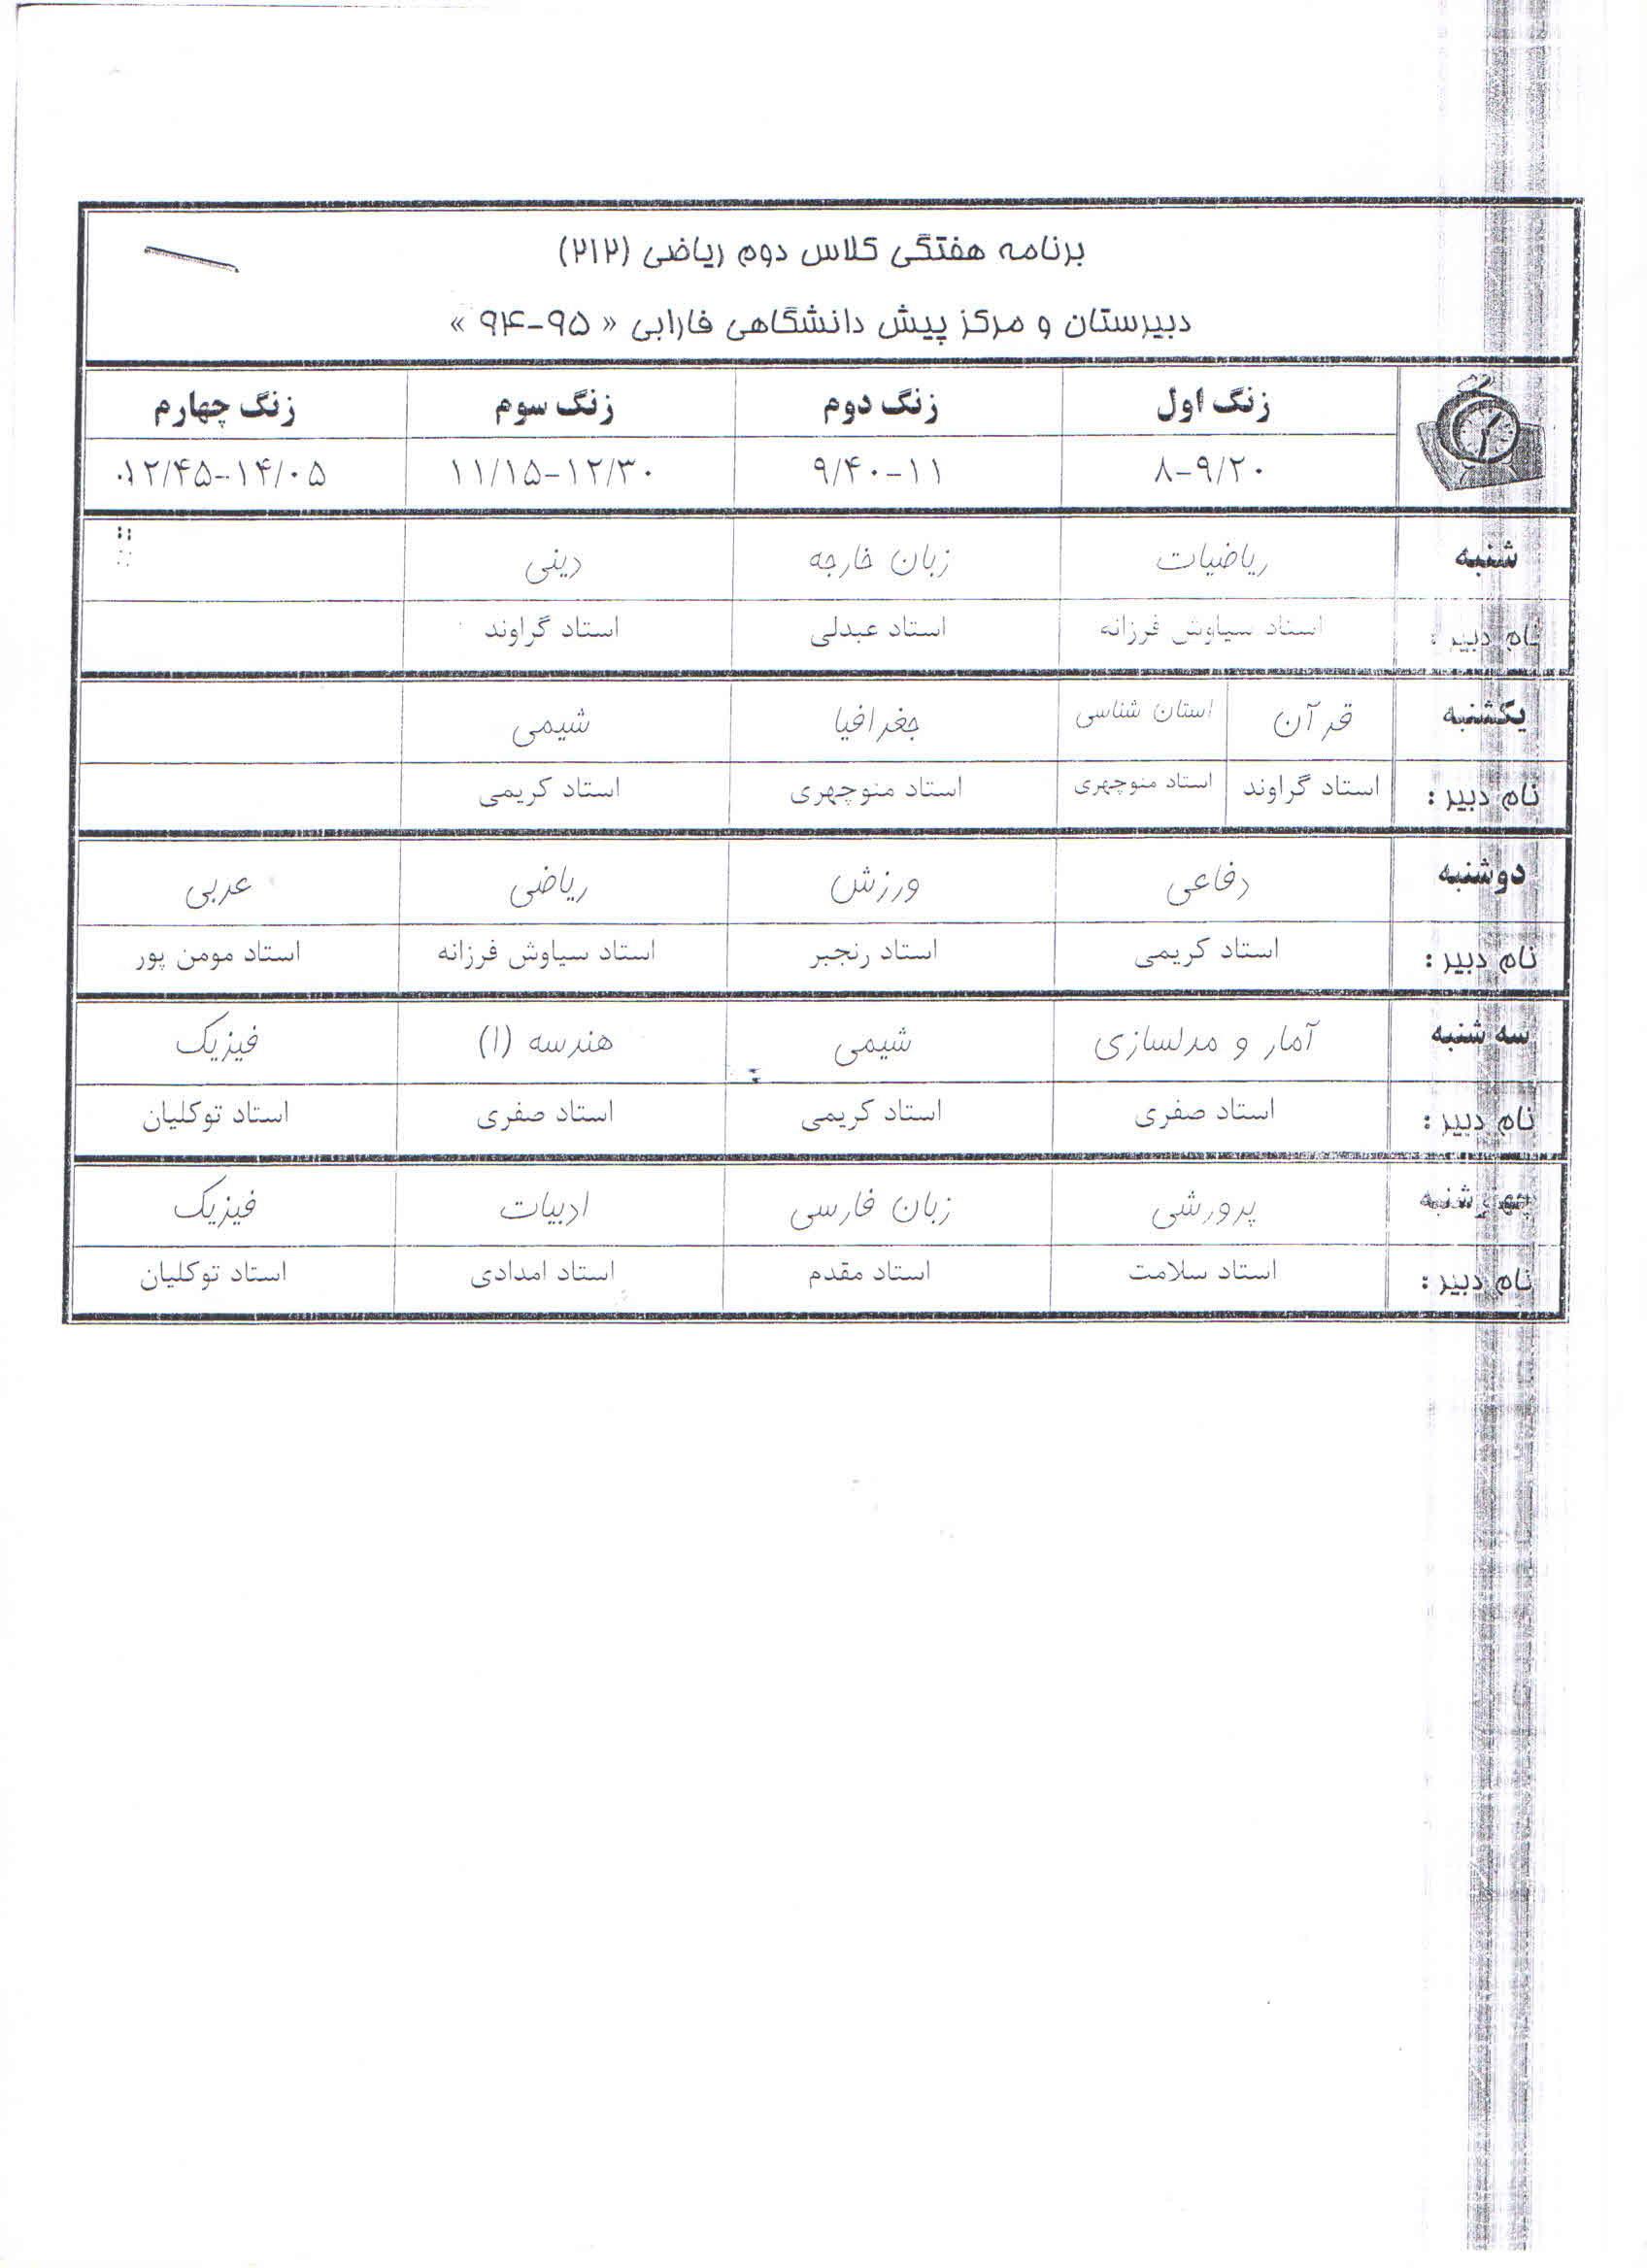 برنامه هفتگی کلاس دوم ریاضی (۲۱۲)
دبیرستان و مرکز پیش دانشگاهی فارابی « ۹۵-۹۴ »
زنگ اول زنگ دوم زنگ سوم زنگ چهارم
۸-۹/۲۰ ۹/۴۰-۱۱ ۱۱/۱۵-۱۲/۳۰ ۱۲/۴۵-۱۴/۰۵
شنبه ریاضیات زبان خارجه دینی
نام دبیر : استاد سیاوش فرزانه استاد عبدلی استاد گراوند
یکشنبه قرآن استان شناسی جغرافیا شیمی
نام دبیر : استاد گراوند استاد منوچهری استاد منوچهری استاد کریمی
دوشنبه دفاعی ورزش ریاضی عربی
نام دبیر : استاد کریمی استاد رنجبر استاد سیاوش فرزانه استاد مومن پور
سه شنبه آمار و مدلسازی شیمی هندسه (۱) فیزیک
نام دبیر : استاد صفری استاد کریمی استاد صفری استاد توکلیان
چهارشنبه پرورشی زبان فارسی ادبیات فیزیک
نام دبیر : استاد سلامت استاد مقدم استاد امدادی استاد توکلیان